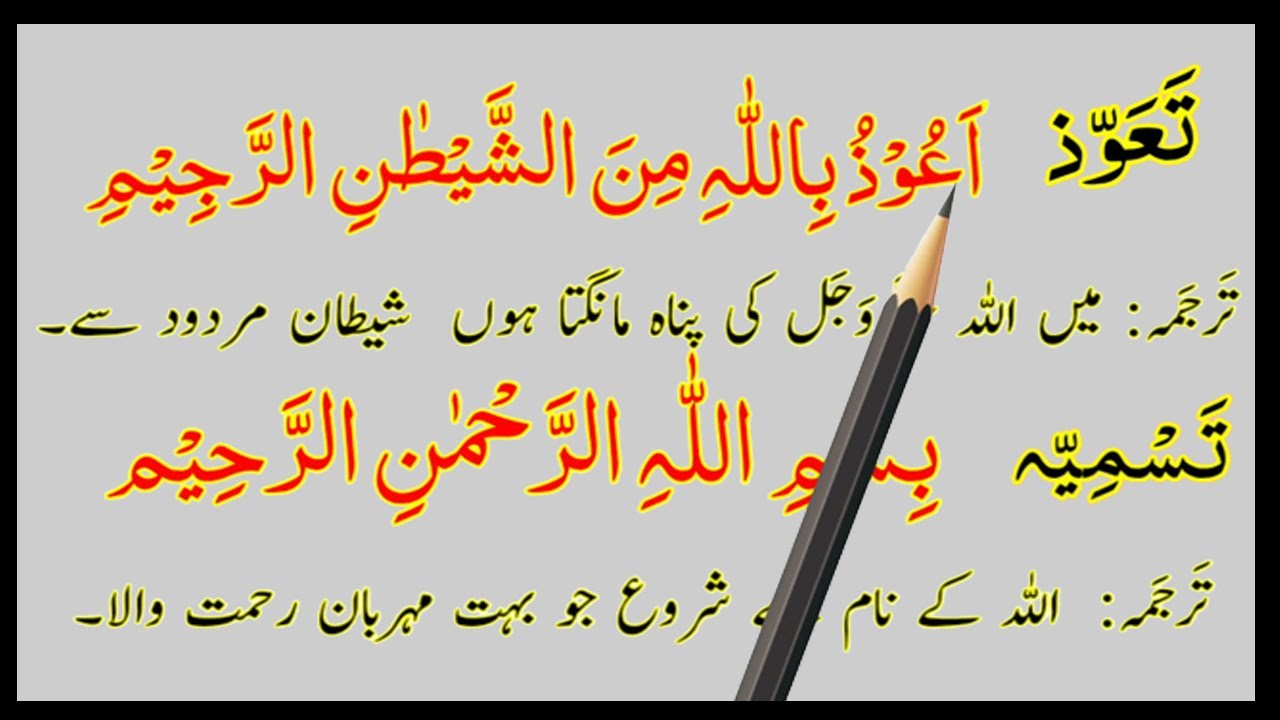 تَعَوُّذ اَعُوْذُ بِاللّٰہِ مِنَ الشَّیْطٰنِ الرَّجِیْمِ
تَرجَمَہ: میں اللہ وَجَل کی پناہ مانگتا ہوں شیطان مردود سے۔
تَسْمِیَّہ بِسْمِ اللّٰہِ الرَّحْمٰنِ الرَّحِیْم
تَرجَمَہ: اللہ کے نام شروع جو بہت مہربان رحمت والا۔